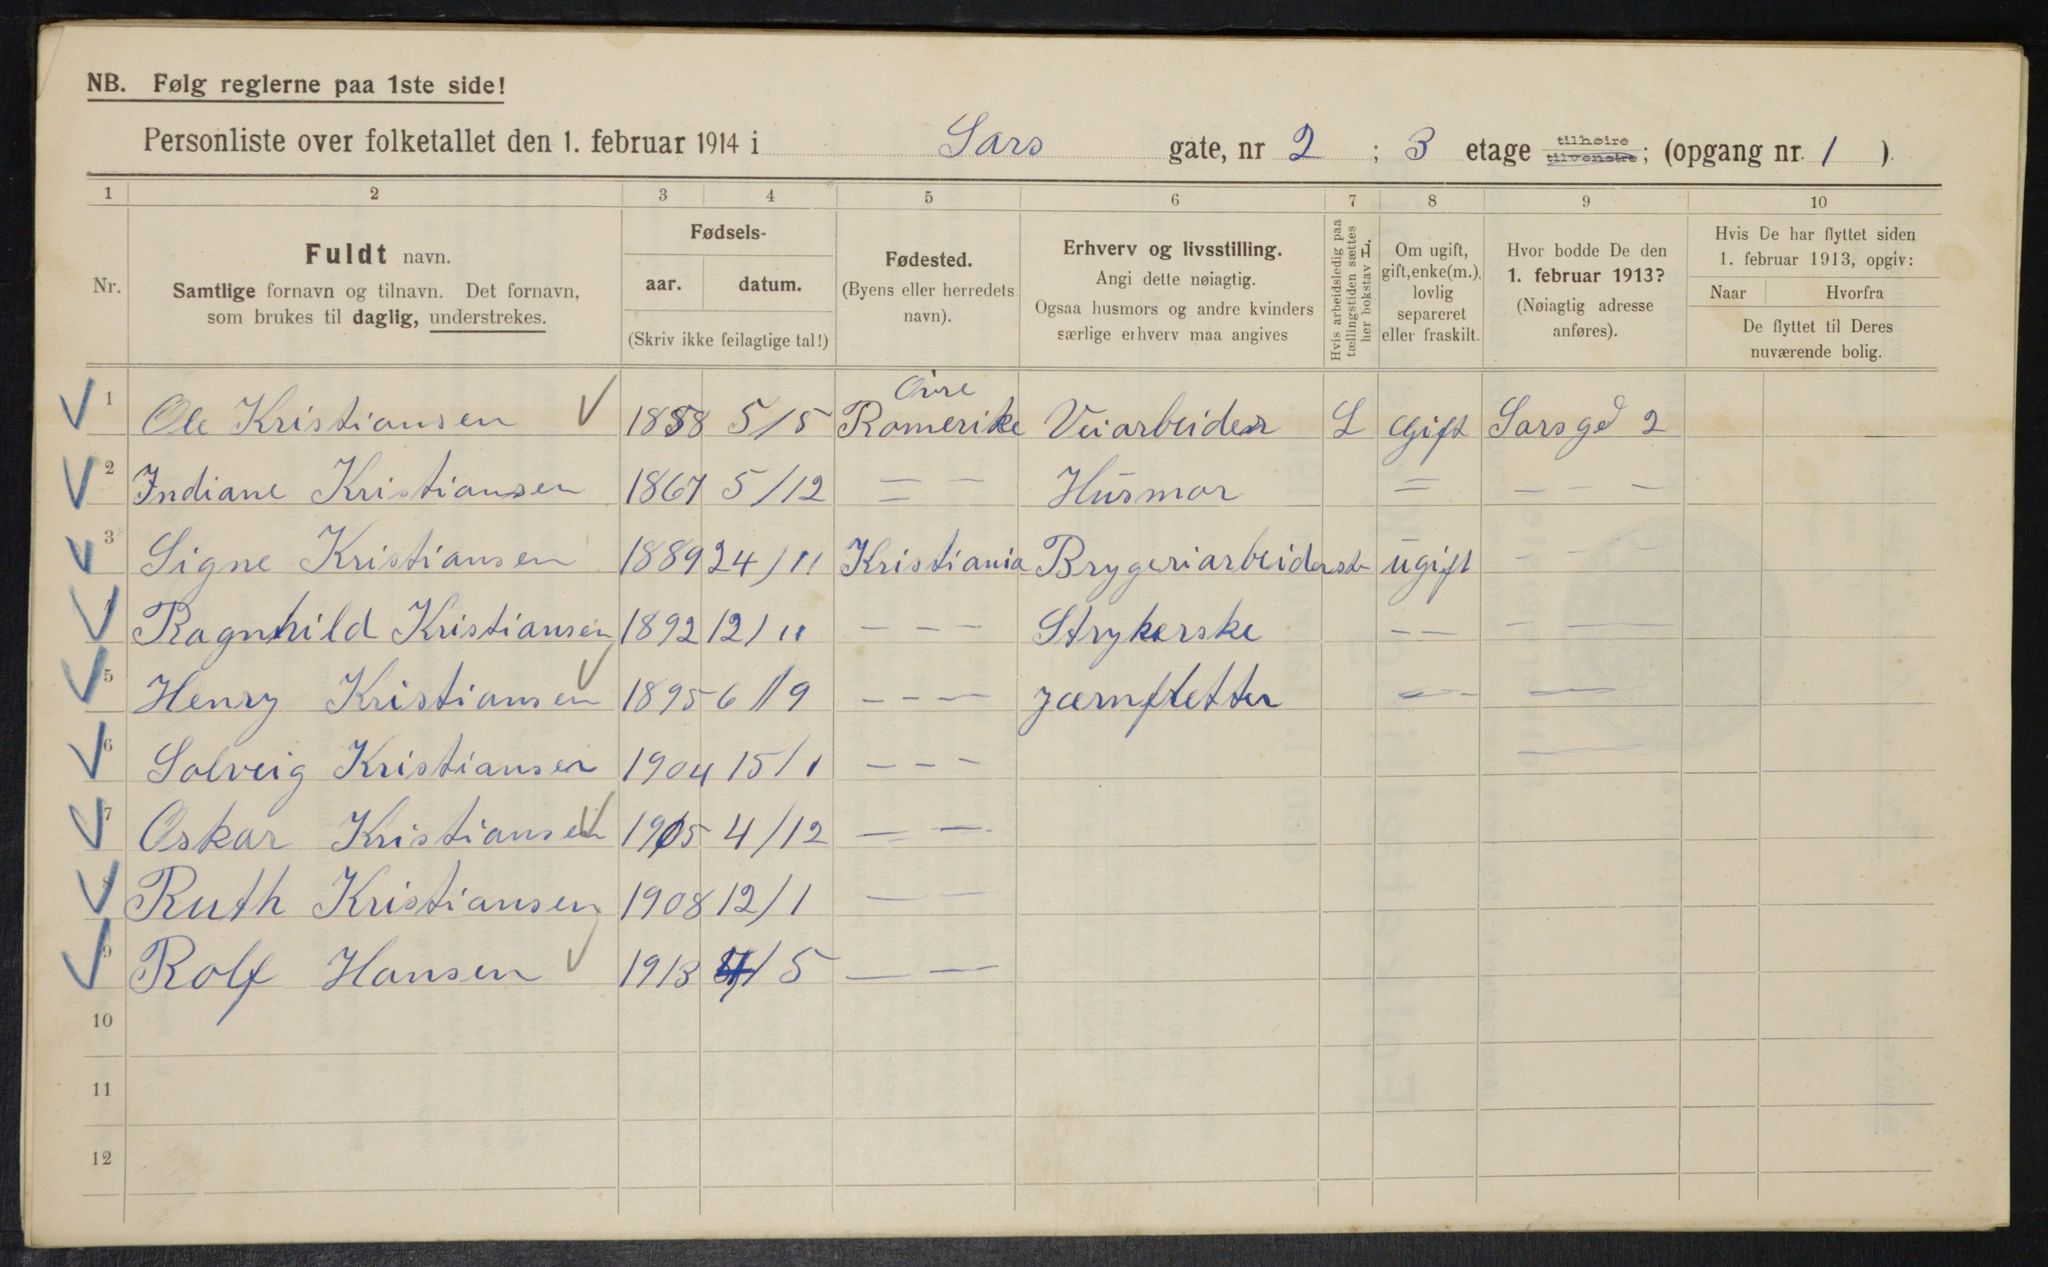 NB. Følg reglerne paa 1ste side!
Personliste over folketallet den 1. februar 1914 i Sars gate, nr 2 ; 3 etage tilhøire tilvenstre; (opgang nr. 1 ).
1 2 3 4 5 6 7 8 9 10
Nr.
Fuldt navn.
Samtlige fornavn og tilnavn. Det fornavn,
som brukes til daglig, understrekes.
Fødsels-
aar. datum.
(Skriv ikke feilagtige tal!)
Fødested.
(Byens eller herredets
navn).
Erhverv og livsstilling.
Angi dette nøiagtig.
Ogsaa husmors og andre kvinders
særlige erhverv maa angives
Hvis arbeidsledig paa
tællingstiden sættes
her bokstav L.
Om ugift,
gift, enke(m.),
lovlig
separeret
eller fraskilt.
Hvor bodde De den
1. februar 1913?
(Nøiagtig adresse
anføres).
Hvis De har flyttet siden
1. februar 1913, opgiv:
Naar Hvorfra
De flyttet til Deres
nuværende bolig.
1 Ole Kristiansen 1858 5/5 Øvre Romerike Veiarbeider L Gift Sarsgd 2
2 Indiane Kristiansen 1867 5/12 = — Husmor = – – –
3 Signe Kristiansen 1889 24/11 Kristiania Brygeriarbeiderske ugift – – –
4 Ragnhild Kristiansen 1892 12/11 – – – Strykerske – – – –
5 Henry Kristiansen 1895 6/9 – – – Jærnfletter – – —
6 Solveig Kristiansen 1904 15/1 – – – —
7 Oskar Kristiansen 1905 4/12 — —
8 Ruth Kristiansen 1908 12/1 — —
9 Rolf Hansen 1913 4/5 — —
10
11
12